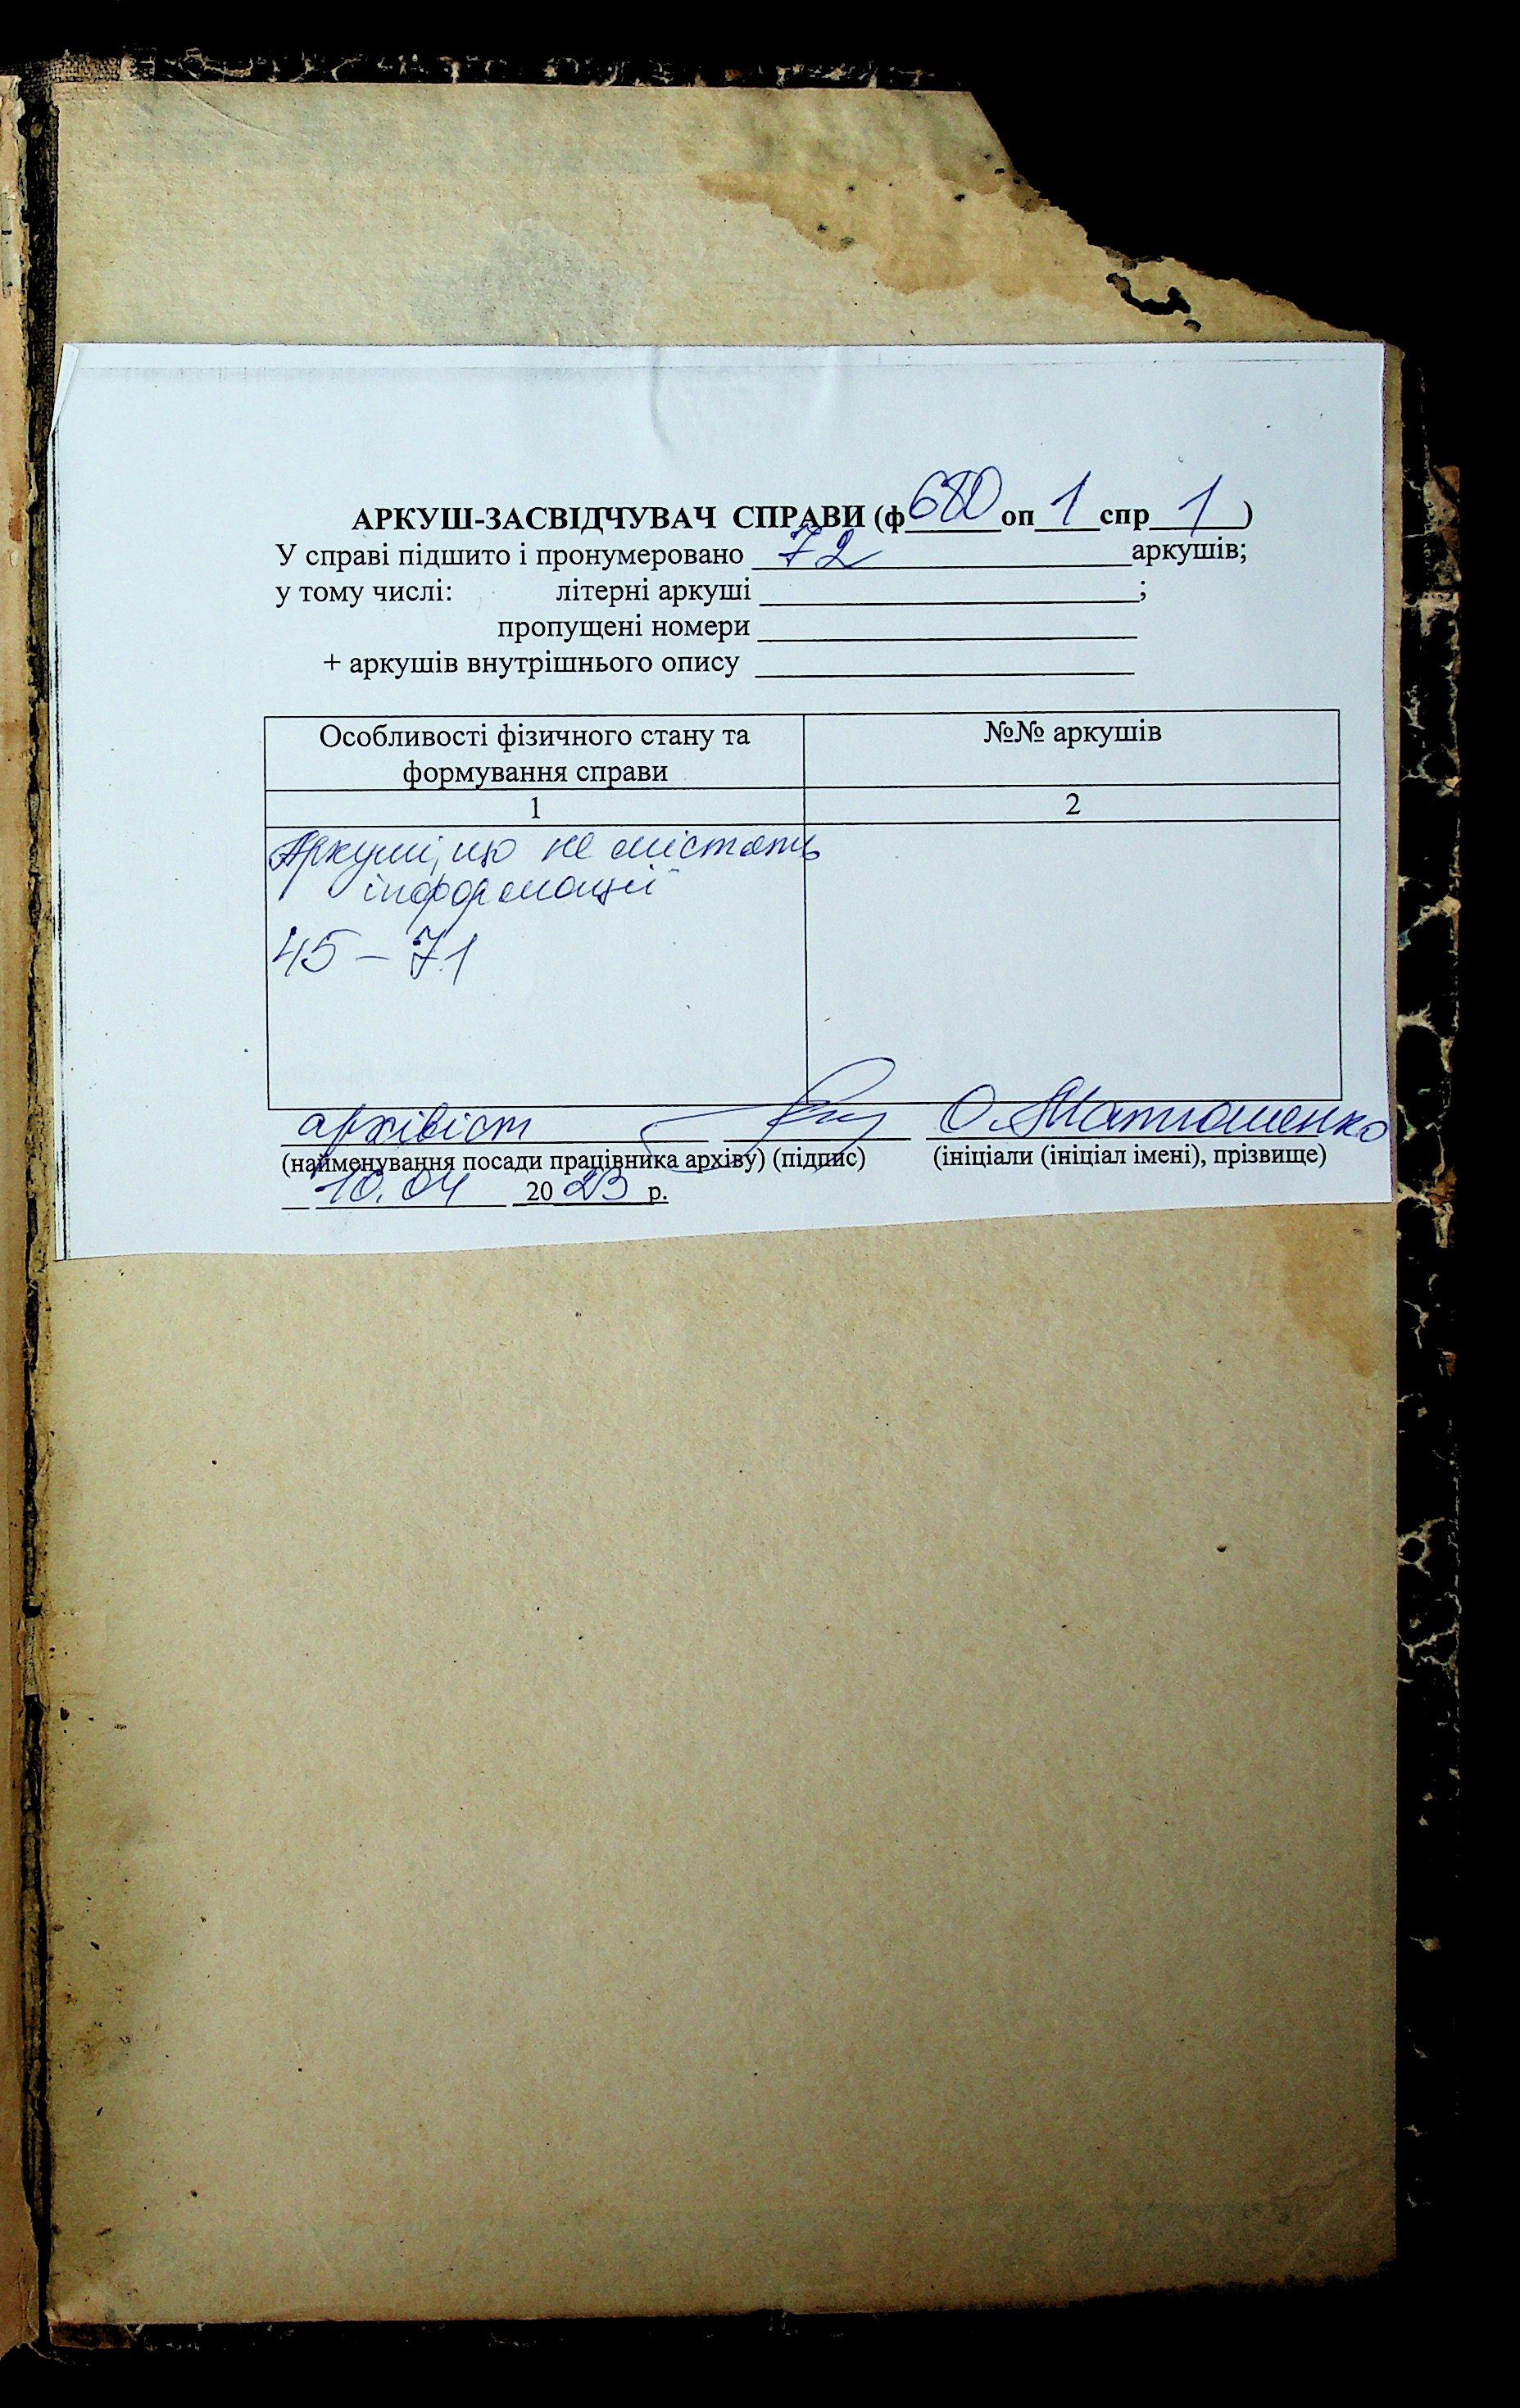 АРКУШ-ЗАСВІДЧУВАЧ СПРАВИ (ф 680 оп 1 спр 1 )
У справі підшито і пронумеровано 72 аркушів;
у тому числі: літерні аркуші ;
пропущені номери
+ аркушів внутрішнього опису
Особливості фізичного стану та
формування справи
№№ аркушів
1
2
Аркуші, що не містять
інформації
45 – 71
архівіст О. Матюшенко
(найменування посади працівника архіву) (підпис) (ініціали (ініціал імені), прізвище)
10.04 2023 р.